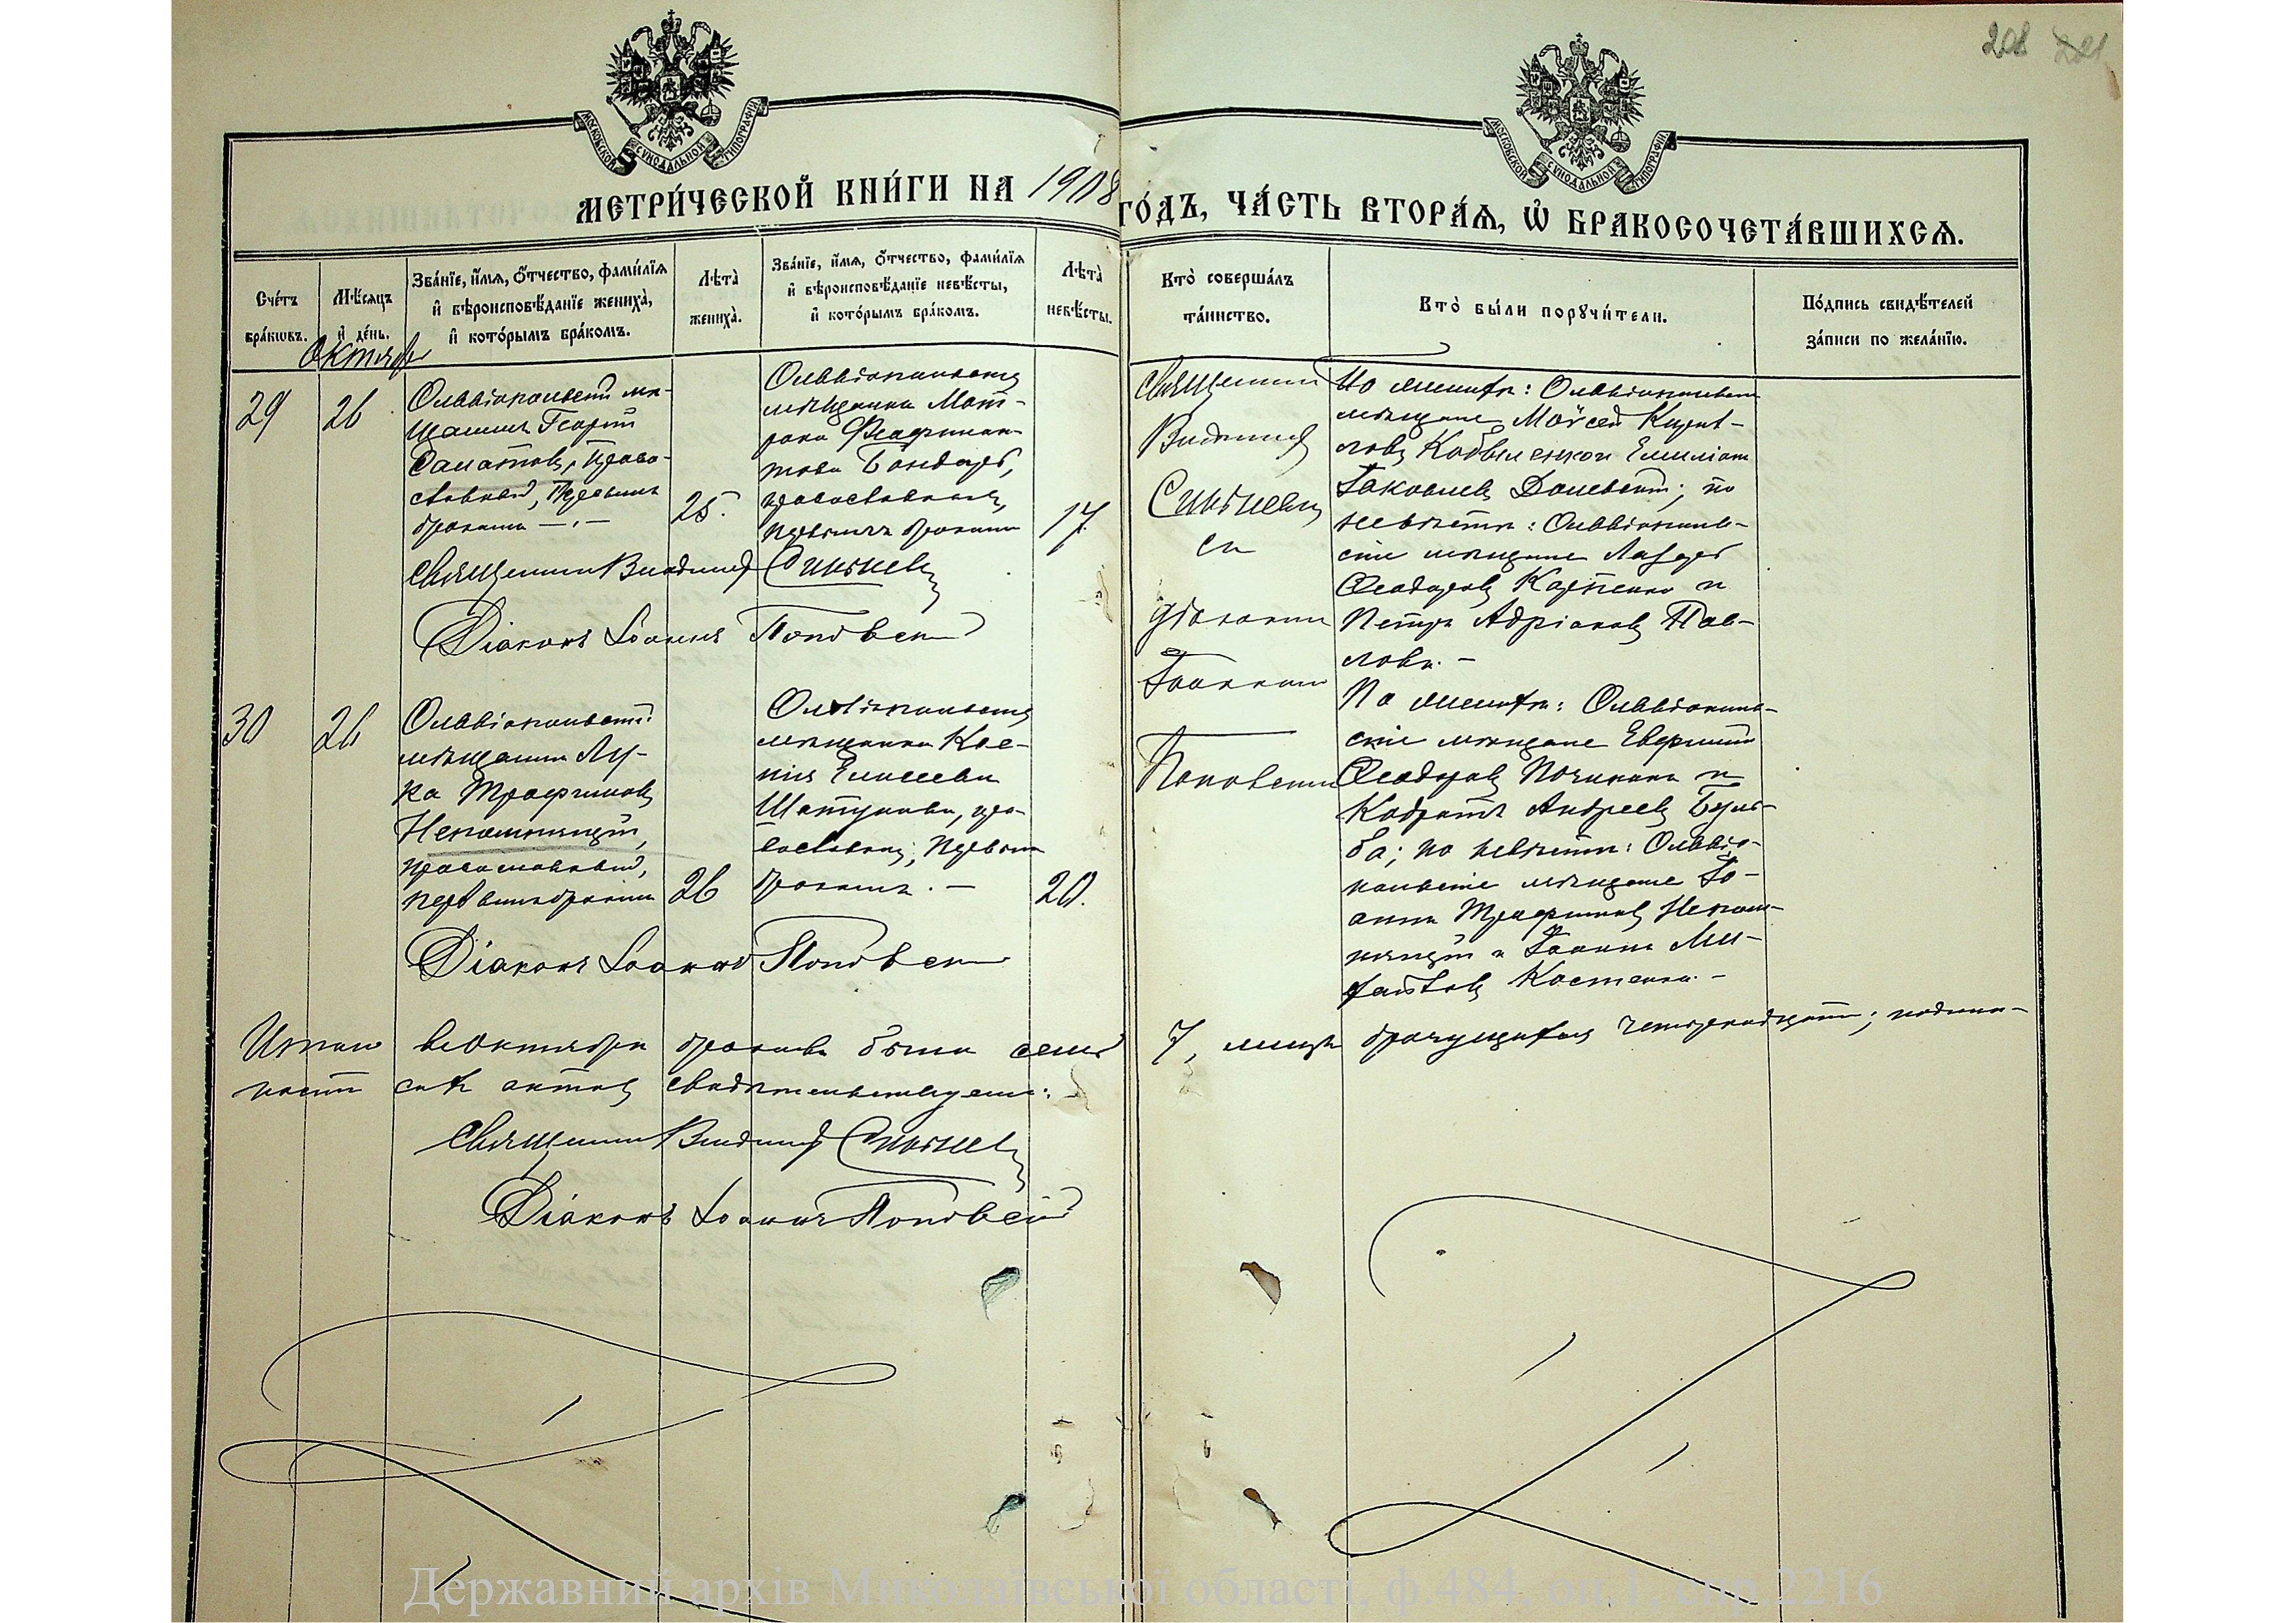 208
МОСКОВСКОЙ СУНОДАЛЬНОЙ ТИПОГРАФИИ
МОСКОВСКОЙ СУНОДАЛЬНОЙ ТИПОГРАФИИ
МЕТРИ́ЧЕСКОЙ КНИ́ГИ НА 1908
ГО́ДЪ, ЧА́СТЬ ВТОРА́Я, Ѡ БРАКОСОЧЕТА́ВШИХСЯ.
Сче́тъ бра́кѡвъ.
Мѣ́сяцъ и де́нь.
Зва́нїе, и́мя, ѻ́тчество, фами́лїя и вѣроисповѣ́данїе жениха̀, и кото́рымъ бра́комъ.
Лѣ́та жениха̀.
Зва́нїе, и́мя, ѻ́тчество, фами́лїя и вѣроисповѣ́данїе невѣ́сты, и кото́рымъ бра́комъ.
Лѣ́та невѣ́сты.
Кто̀ соверша́лъ та́инство.
Кто̀ бы́ли порꙋчи́тели.
По́дпись свидѣ́телей за́писи по жела́нїю.
Октябрь
29
26
Ольвіопольскій мѣ-
щанинъ Георгій
православный, Первымъ
бракомъ —
25.
Ольвіопольская
мѣщанка Мат-
рона Феофилак-
това Бондарь,
православная,
первымъ бракомъ
17
Священникъ Владимір Синѣневъ
Діаконъ Іоаннъ Поповскій
Священникъ
Владиміръ
съ
діакономъ
Іоанномъ
Поповскимъ
По женихѣ: Ольвіопольскіе
мѣщане Моѵсей Кирил-
ловъ Кобыленко и Емиліанъ
Іаковлевъ; по
невѣстѣ: Ольвіополь-
скіе мѣщане Лазарь
Ѳеодоровъ Карпенко и
Петръ Адріановъ Пав-
ловъ. —
30
26
Ольвіопольскій
мѣщанинъ Лу-
ка Трофимовъ
Непомнящій,
православный,
первымъ бракомъ
26
Ольвіопольская
мѣщанка Ксе-
нія Елисеева
пра-
вославная, Первымъ
бракомъ. —
20.
Діаконъ Іоаннъ Поповскій
По женихѣ: Ольвіополь-
скіе мѣщане Евфимій
Ѳеодоровъ Починокъ и
Кодратъ Андреевъ Буль-
ба; по невѣстѣ: Ольвіо-
польскіе мѣщане Іо-
аннъ Трофимовъ Непом-
нящій и Іоаннъ Ми-
хайловъ Костенко. —
Итого въ Октябрѣ браковъ было семь 7, лицъ брачущихся четырнадцать; подлин-
ность сихъ актовъ свидѣтельствуемъ:
Священникъ Владимір Синѣневъ
Діаконъ Іоаннъ Поповскій
Державний архів Миколаївської області, ф.484, оп.1, спр.2216